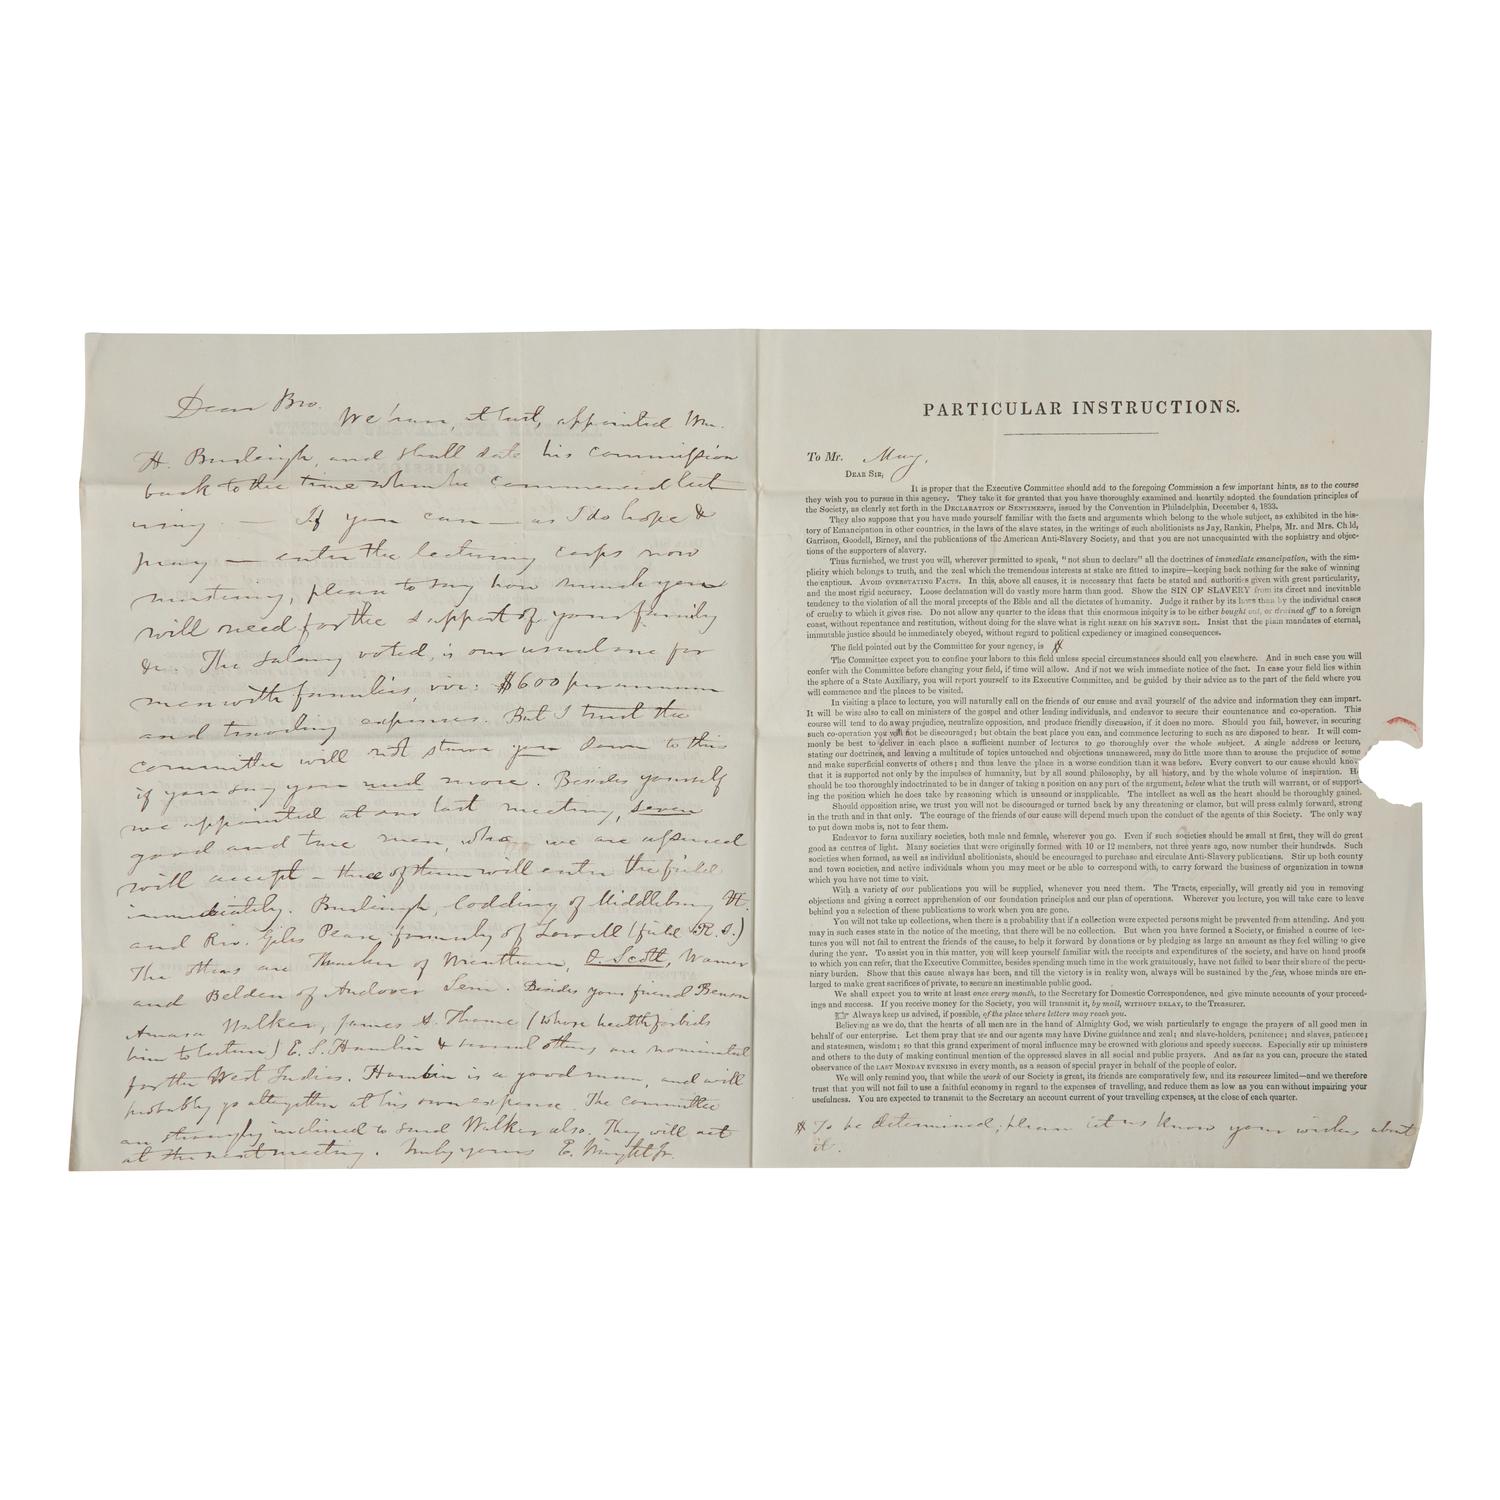 Dear Bro.
We have, at last, appointed Wm.
H. Burleigh, and shall date his commission
back to the time when he commenced lect
uring. — If you can — as I do hope &
pray — enter the lecturing corps now
mustering, please to say how much you
will need for the support of your family
&c. The salary voted, is our usual one for
men with families, viz: $600 per annum
and traveling expenses. But I trust the
committee will not starve you down to this
if you say you need more. Besides yourself
we appointed at our last meeting, seven
good and true men, who we are assured
will accept – three of them will enter the field
immediately. Burleigh, Codding of Middlebury Vt.
and Rev. Giles Pease formerly of Lowell (field R.I.)
The others are Thacher of Wrentham, O. Scott, Warner
and Belden of Andover Sem. Besides your friend Benson
Amasa Walker, James A. Thome (whose health forbids
him to lecture) E. S. Hamlin & several others are nominated
for the West Indies. Hamlin is a good man, and will
probably go altogether at his own expense. The committee
are strongly inclined to send Walker also. They will act
at the next meeting. Truly yours E. Wright Jr.
PARTICULAR INSTRUCTIONS.
To Mr. May,
DEAR SIR,
It is proper that the Executive Committee should add to the foregoing Commission a few important hints, as to the course
they wish you to pursue in this agency. They take it for granted that you have thoroughly examined and heartily adopted the foundation principles of
the Society, as clearly set forth in the DECLARATION OF SENTIMENTS, issued by the Convention in Philadelphia, December 4, 1833.
They also suppose that you have made yourself familiar with the facts and arguments which belong to the whole subject, as exhibited in the his-
tory of Emancipation in other countries, in the laws of the slave states, in the writings of such abolitionists as Jay, Rankin, Phelps, Mr. and Mrs. Child,
Garrison, Goodell, Birney, and the publications of the American Anti-Slavery Society, and that you are not unacquainted with the sophistry and objec-
tions of the supporters of slavery.
Thus furnished, we trust you will, wherever permitted to speak, "not shun to declare" all the doctrines of immediate emancipation, with the sim-
plicity which belongs to truth, and the zeal which the tremendous interests at stake are fitted to inspire—keeping back nothing for the sake of winning
the captious. AVOID OVERSTATING FACTS. In this, above all causes, it is necessary that facts be stated and authorities given with great particularity,
and the most rigid accuracy. Loose declamation will do vastly more harm than good. Show the SIN OF SLAVERY from its direct and inevitable
tendency to the violation of all the moral precepts of the Bible and all the dictates of humanity. Judge it rather by its laws than by the individual cases
of cruelty to which it gives rise. Do not allow any quarter to the ideas that this enormous iniquity is to be either bought out, or drained off to a foreign
coast, without repentance and restitution, without doing for the slave what is right HERE on his NATIVE SOIL. Insist that the plain mandates of eternal,
immutable justice should be immediately obeyed, without regard to political expediency or imagined consequences.
The field pointed out by the Committee for your agency, is
The Committee expect you to confine your labors to this field unless special circumstances should call you elsewhere. And in such case you will
confer with the Committee before changing your field, if time will allow. And if not we wish immediate notice of the fact. In case your field lies within
the sphere of a State Auxiliary, you will report yourself to its Executive Committee, and be guided by their advice as to the part of the field where you
will commence and the places to be visited.
In visiting a place to lecture, you will naturally call on the friends of our cause and avail yourself of the advice and information they can impart.
It will be wise also to call on ministers of the gospel and other leading individuals, and endeavor to secure their countenance and co-operation. This
course will tend to do away prejudice, neutralize opposition, and produce friendly discussion, if it does no more. Should you fail, however, in securing
such co-operation you will not be discouraged; but obtain the best place you can, and commence lecturing to such as are disposed to hear. It will com-
monly be best to deliver in each place a sufficient number of lectures to go thoroughly over the whole subject. A single address or lecture,
stating our doctrines, and leaving a multitude of topics untouched and objections unanswered, may do little more than to arouse the prejudice of some
and make superficial converts of others; and thus leave the place in a worse condition than it was before. Every convert to our cause should know
that it is supported not only by the impulses of humanity, but by all sound philosophy, by all history, and by the whole volume of inspiration. He
should be too thoroughly indoctrinated to be in danger of taking a position on any part of the argument, below what the truth will warrant, or of support-
ing the position which he does take by reasoning which is unsound or inapplicable. The intellect as well as the heart should be thoroughly gained.
Should opposition arise, we trust you will not be discouraged or turned back by any threatening or clamor, but will press calmly forward, strong
in the truth and in that only. The courage of the friends of our cause will depend much upon the conduct of the agents of this Society. The only way
to put down mobs is, not to fear them.
Endeavor to form auxiliary societies, both male and female, wherever you go. Even if such societies should be small at first, they will do great
good as centres of light. Many societies that were originally formed with 10 or 12 members, not three years ago, now number their hundreds. Such
societies when formed, as well as individual abolitionists, should be encouraged to purchase and circulate Anti-Slavery publications. Stir up both county
and town societies, and active individuals whom you may meet or be able to correspond with, to carry forward the business of organization in towns
which you have not time to visit.
With a variety of our publications you will be supplied, whenever you need them. The Tracts, especially, will greatly aid you in removing
objections and giving a correct apprehension of our foundation principles and our plan of operations. Wherever you lecture, you will take care to leave
behind you a selection of these publications to work when you are gone.
You will not take up collections, when there is a probability that if a collection were expected persons might be prevented from attending. And you
may in such cases state in the notice of the meeting, that there will be no collection. But when you have formed a Society, or finished a course of lec-
tures you will not fail to entreat the friends of the cause, to help it forward by donations or by pledging as large an amount as they feel willing to give
during the year. To assist you in this matter, you will keep yourself familiar with the receipts and expenditures of the society, and have on hand proofs
to which you can refer, that the Executive Committee, besides spending much time in the work gratuitously, have not failed to bear their share of the pecu-
niary burden. Show that this cause always has been, and till the victory is in reality won, always will be sustained by the few, whose minds are en-
larged to make great sacrifices of private, to secure an inestimable public good.
We shall expect you to write at least once every month, to the Secretary for Domestic Correspondence, and give minute accounts of your proceed-
ings and success. If you receive money for the Society, you will transmit it, by mail, WITHOUT DELAY, to the Treasurer.
☞ Always keep us advised, if possible, of the place where letters may reach you.
Believing as we do, that the hearts of all men are in the hand of Almighty God, we wish particularly to engage the prayers of all good men in
behalf of our enterprise. Let them pray that we and our agents may have Divine guidance and zeal; and slave-holders, penitence; and slaves, patience;
and statesmen, wisdom; so that this grand experiment of moral influence may be crowned with glorious and speedy success. Especially stir up ministers
and others to the duty of making continual mention of the oppressed slaves in all social and public prayers. And as far as you can, procure the stated
observance of the LAST MONDAY EVENING in every month, as a season of special prayer in behalf of the people of color.
We will only remind you, that while the work of our Society is great, its friends are comparatively few, and its resources limited—and we therefore
trust that you will not fail to use a faithful economy in regard to the expenses of travelling, and reduce them as low as you can without impairing your
usefulness. You are expected to transmit to the Secretary an account current of your travelling expenses, at the close of each quarter.
To be determined; please let us know your wishes about
it.